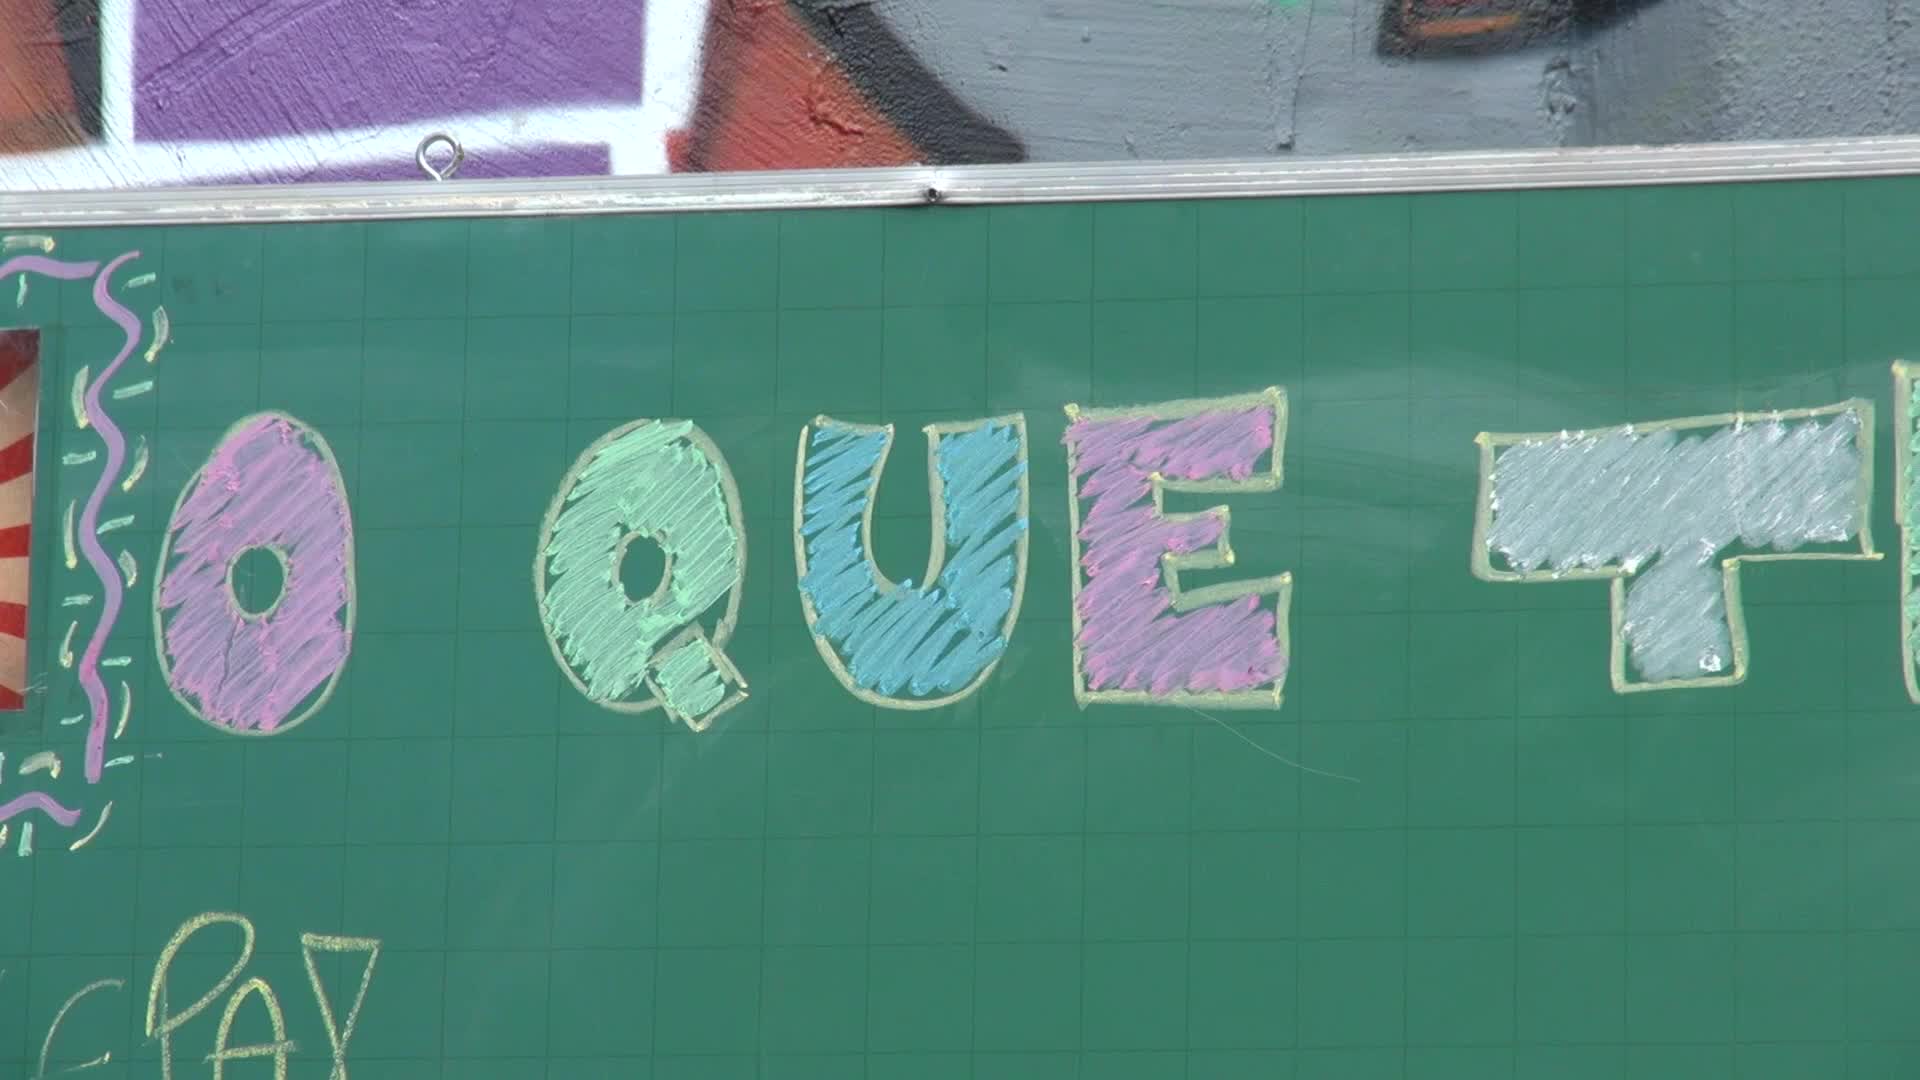 O QUE T
PAX